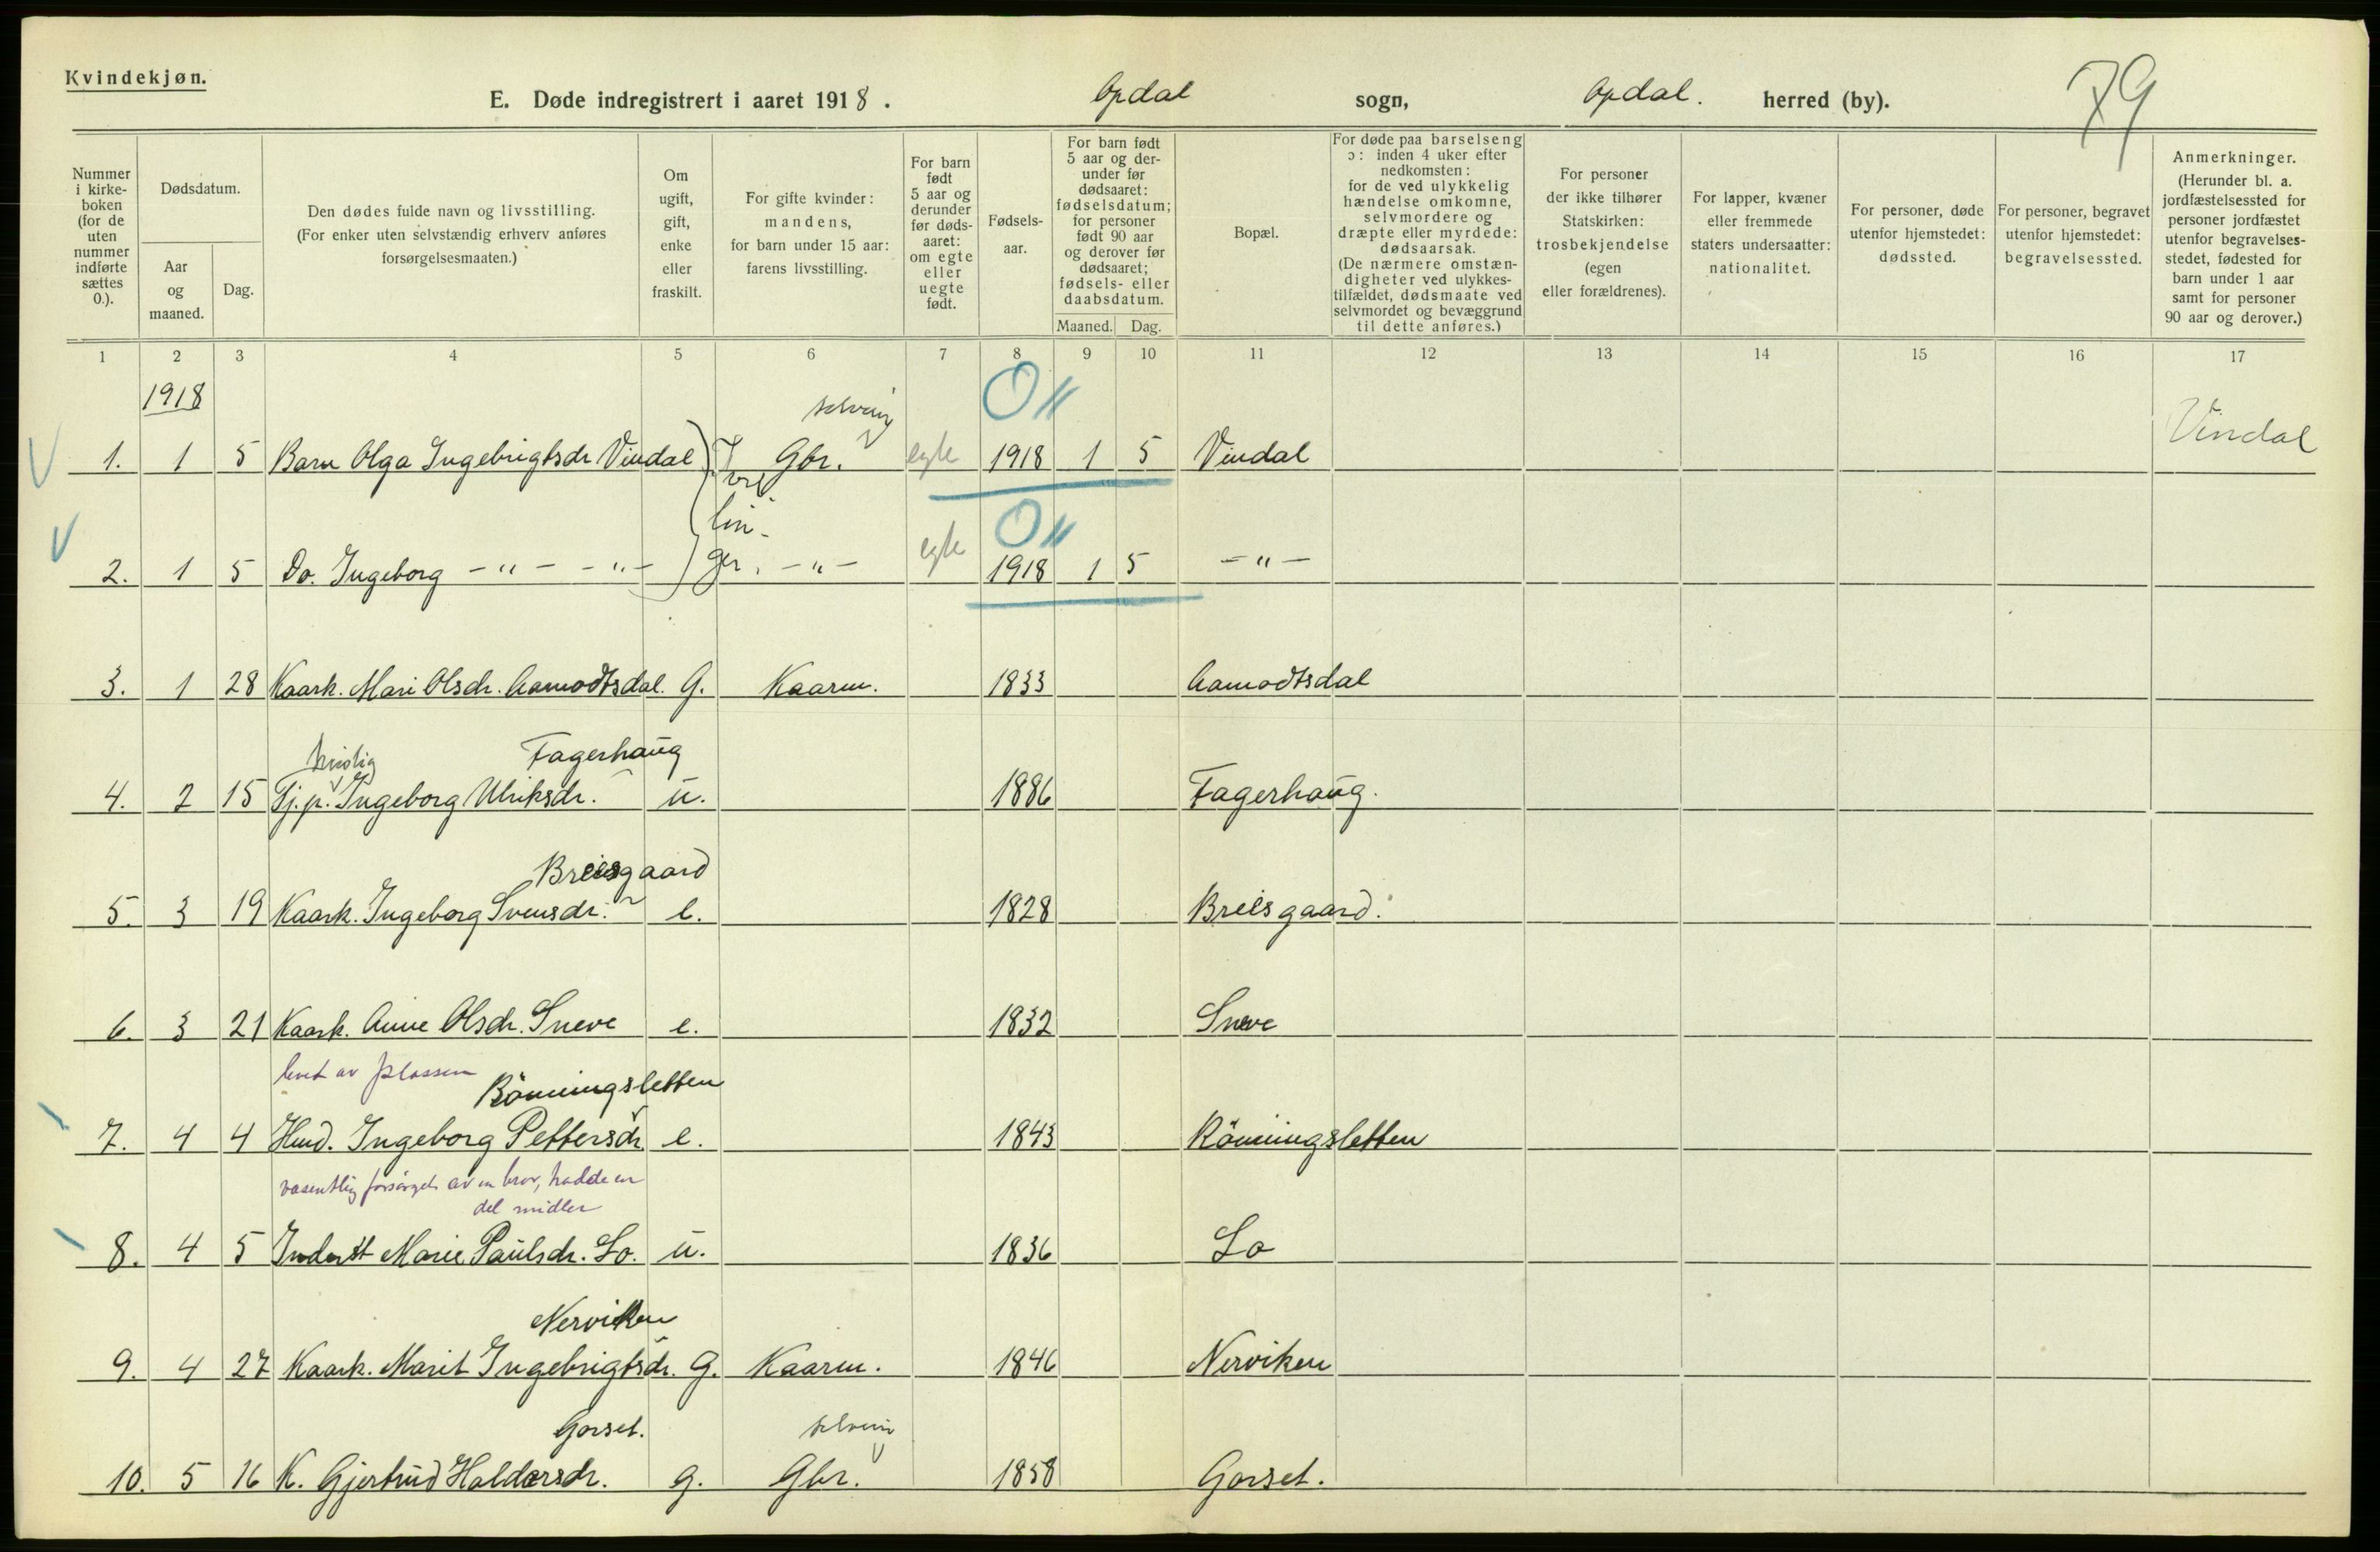 Kvindekjøn.
E. Døde indregistrert i aaret 1918. Opdal sogn, Opdal. herred (by).
79
Nummer i kirkeboken (for de uten nummer indførte sættes 0.).
Dødsdatum.
Aar og maaned.
Dag.
Den dødes fulde navn og livsstilling. (For enker uten selvstændig erhverv anføres forsørgelsesmaaten.)
Om ugift, gift, enke eller fraskilt.
For gifte kvinder: mandens, for barn under 15 aar: farens livsstilling.
For barn født 5 aar og derunder før dødsaaret: om egte eller uegte født.
Fødselsaar.
For barn født 5 aar og derunder før dødsaaret: fødselsdatum; for personer født 90 aar og derover før dødsaaret; fødsels- eller daabsdatum.
Maaned. Dag.
Bopæl.
For døde paa barselseng ɔ: inden 4 uker efter nedkomsten: for de ved ulykkelig hændelse omkomne, selvmordere og dræpte eller myrdede: dødsaarsak. (De nærmere omstændigheter ved ulykkestilfældet, dødsmaate ved selvmordet og bevæggrund til dette anføres.)
For personer der ikke tilhører Statskirken: trosbekjendelse (egen eller forældrenes).
For lapper, kvæner eller fremmede staters undersaatter: nationalitet.
For personer, døde utenfor hjemstedet: dødssted.
For personer, begravet utenfor hjemstedet: begravelsessted.
Anmerkninger. (Herunder bl. a. jordfæstelsessted for personer jordfæstet utenfor begravelsesstedet, fødested for barn under 1 aar samt for personer 90 aar og derover.)
1 2 3 4 5 6 7 8 9 10 11 12 13 14 15 16 17
1918
selveier
1. 1 5 Barn Olga Ingebrigtsdr Vindal Gbr. egte 1918 1 5 Vindal Vindal
Tvillinger.
2. 1 5 Do. Ingeborg -"- -"- -"- egte 1918 1 5 -"-
3. 1 28 Kaark. Mari Olsdr. Aamodtsdal. G. Kaarm. 1833 Aamodtsdal
huslig Fagerhaug
4. 2 15 Tj.p. Ingeborg Ulriksdr. u. 1886 Fagerhaug.
Breesgaard
5. 3 19 Kaark. Ingeborg Svensdr. e. 1828 Breesgaard.
6. 3 21 Kaark. Anne Olsdr. Sneve e. 1832 Sneve
levet av plassen Rönningsletten
7. 4 4 Husm. Ingeborg Pettersdr. e. 1843 Rönningsletten
væsentlig forsörget av en bror, hadde en
del midler
8. 4 5 Inderst Marie Paulsdr. Lo. u. 1836 Lo
Nerviken
9. 4 27 Kaark. Marit Ingebrigtsdr. G. Kaarm. 1846 Nerviken
Gorset. selveier
10. 5 16 K. Gjertrud Haldorsdr. g. Gbr. 1858 Gorset.